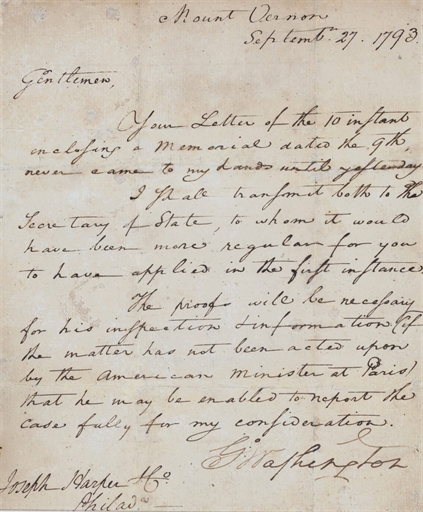 Mount Vernon
Septembr. 27. 1793.
Gentlemen,
Your Letter of the 10 instant
enclosing a Memorial dated the 9th,
never came to my hands until yesterday.
I shall transmit both to the
Secretary of State, to whom it would
have been more regular for you
to have applied in the first instance.
The proofs will be necessary
for his inspection & information (if
the matter has not been acted upon
by the American Minister at Paris)
that he may be enabled to report the
case fully for my consideration.
Go. Washington
Joseph Harper & Co.
Philada.